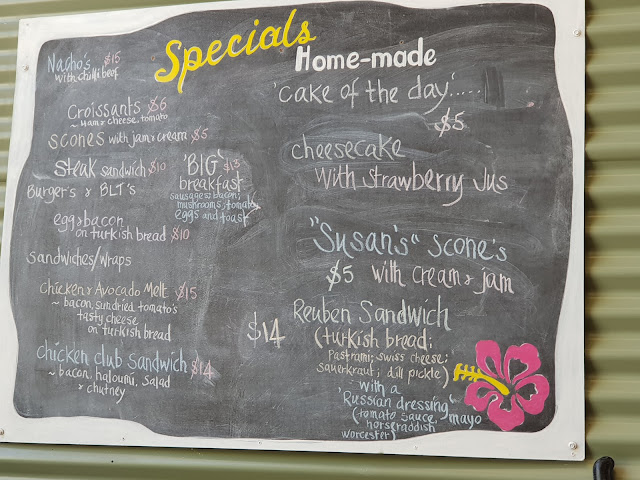 Specials
Nacho's $15
with chilli beef
Croissants $6
~ Ham & cheese, tomato
scones with jam & cream $5
steak sandwich $10
Burger's & BLT'S
egg & bacon
on turkish bread $10
sandwiches/wraps
chicken & Avocado Melt $15
~ bacon, sundried tomato's
tasty cheese
on turkish bread
chicken club sandwich $14
~ bacon, haloumi, salad
& chutney
'BIG' $13
breakfast
sausages: bacon;
mushrooms; tomato,
eggs and toast
Home-made
'cake of the day'.....
$5
cheesecake
with strawberry jus
"Susan's" scone's
$5 with cream & jam
Reuben Sandwich
$14 (turkish bread;
Pastrami; swiss cheese;
sauerkraut; dill pickle)
with a
'Russian dressing'
(tomato sauce, mayo
horseraddish
worcester)